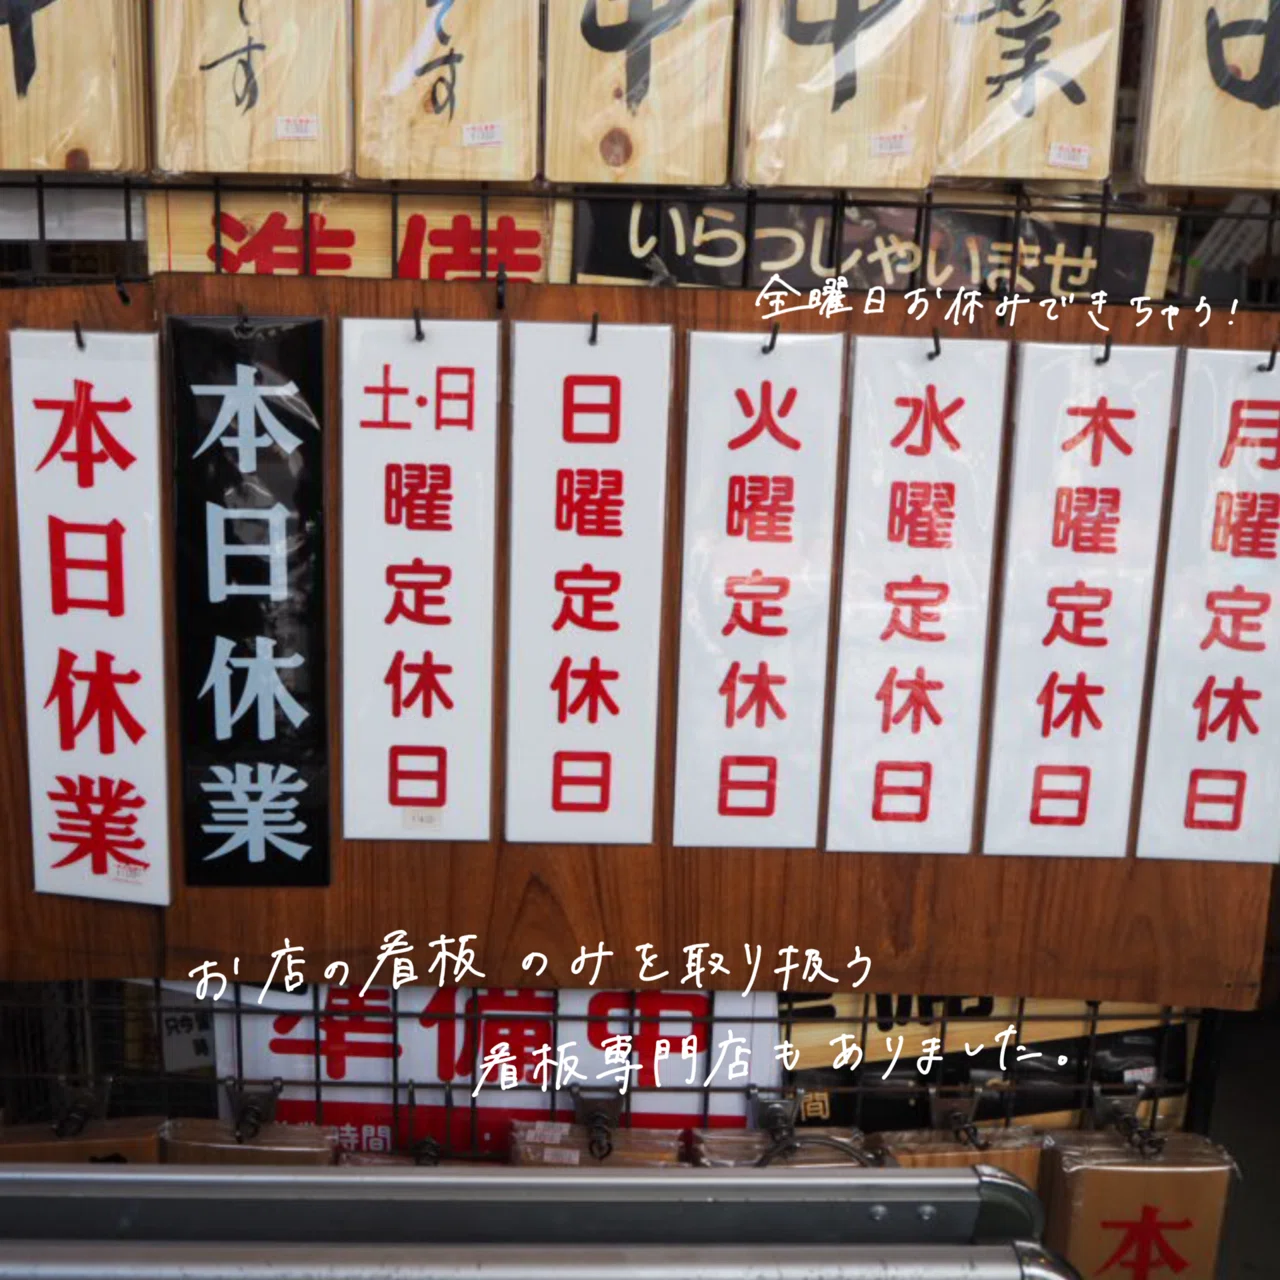 です
です
中
中
業
準備
いらっしゃいませ
全曜日お休みできちゃう!
本日休業
本日休業
土・日曜定休日
日曜定休日
火曜定休日
水曜定休日
木曜定休日
月曜定休日
お店の看板のみを取り扱う
準備中
看板専門店もありました。
時間
間
本